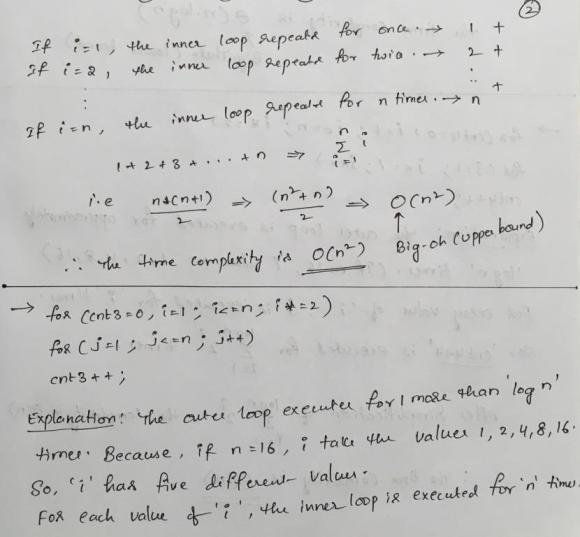 2
If i=1, the inner loop repeats for once. → 1 +
If i=2, the inner loop repeats for twice. → 2 +
: : +
If i=n, the inner loop repeats for n times. → n
1+2+3+ . . . . +n ⇒ n Σ i i=1
i.e n*(n+1)/2 ⇒ (n²+n)/2 ⇒ O(n²)
↑ Big-oh (upper bound)
∴ The time complexity is O(n²)
→ for (cnt3=0, i=1 ; i<=n ; i*=2)
for (j=1 ; j<=n ; j++)
cnt3++;
Explanation: The outer loop executes for 1 more than 'log n'
times. Because, if n=16, i take the values 1, 2, 4, 8, 16.
So, 'i' has five different values.
For each value of 'i', the inner loop is executed for 'n' times.